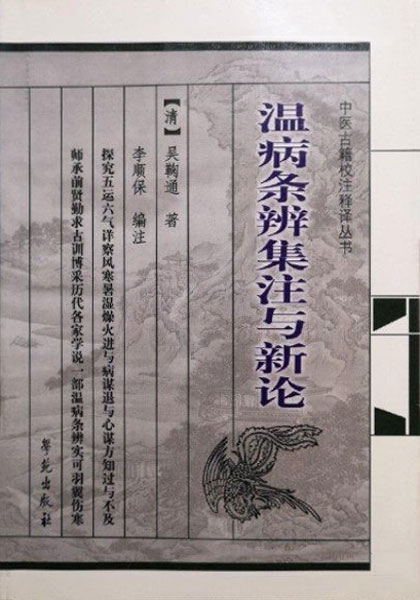 中医古籍校注释译丛书
温病条辨集注与新论
【清】吴鞠通 著
李顺保 编注
探究五运六气详察风寒暑湿燥火进与病谋退与心谋方知过与不及
师承前贤勤求古训博采历代各家学说一部温病条辨实可羽翼伤寒
学苑出版社